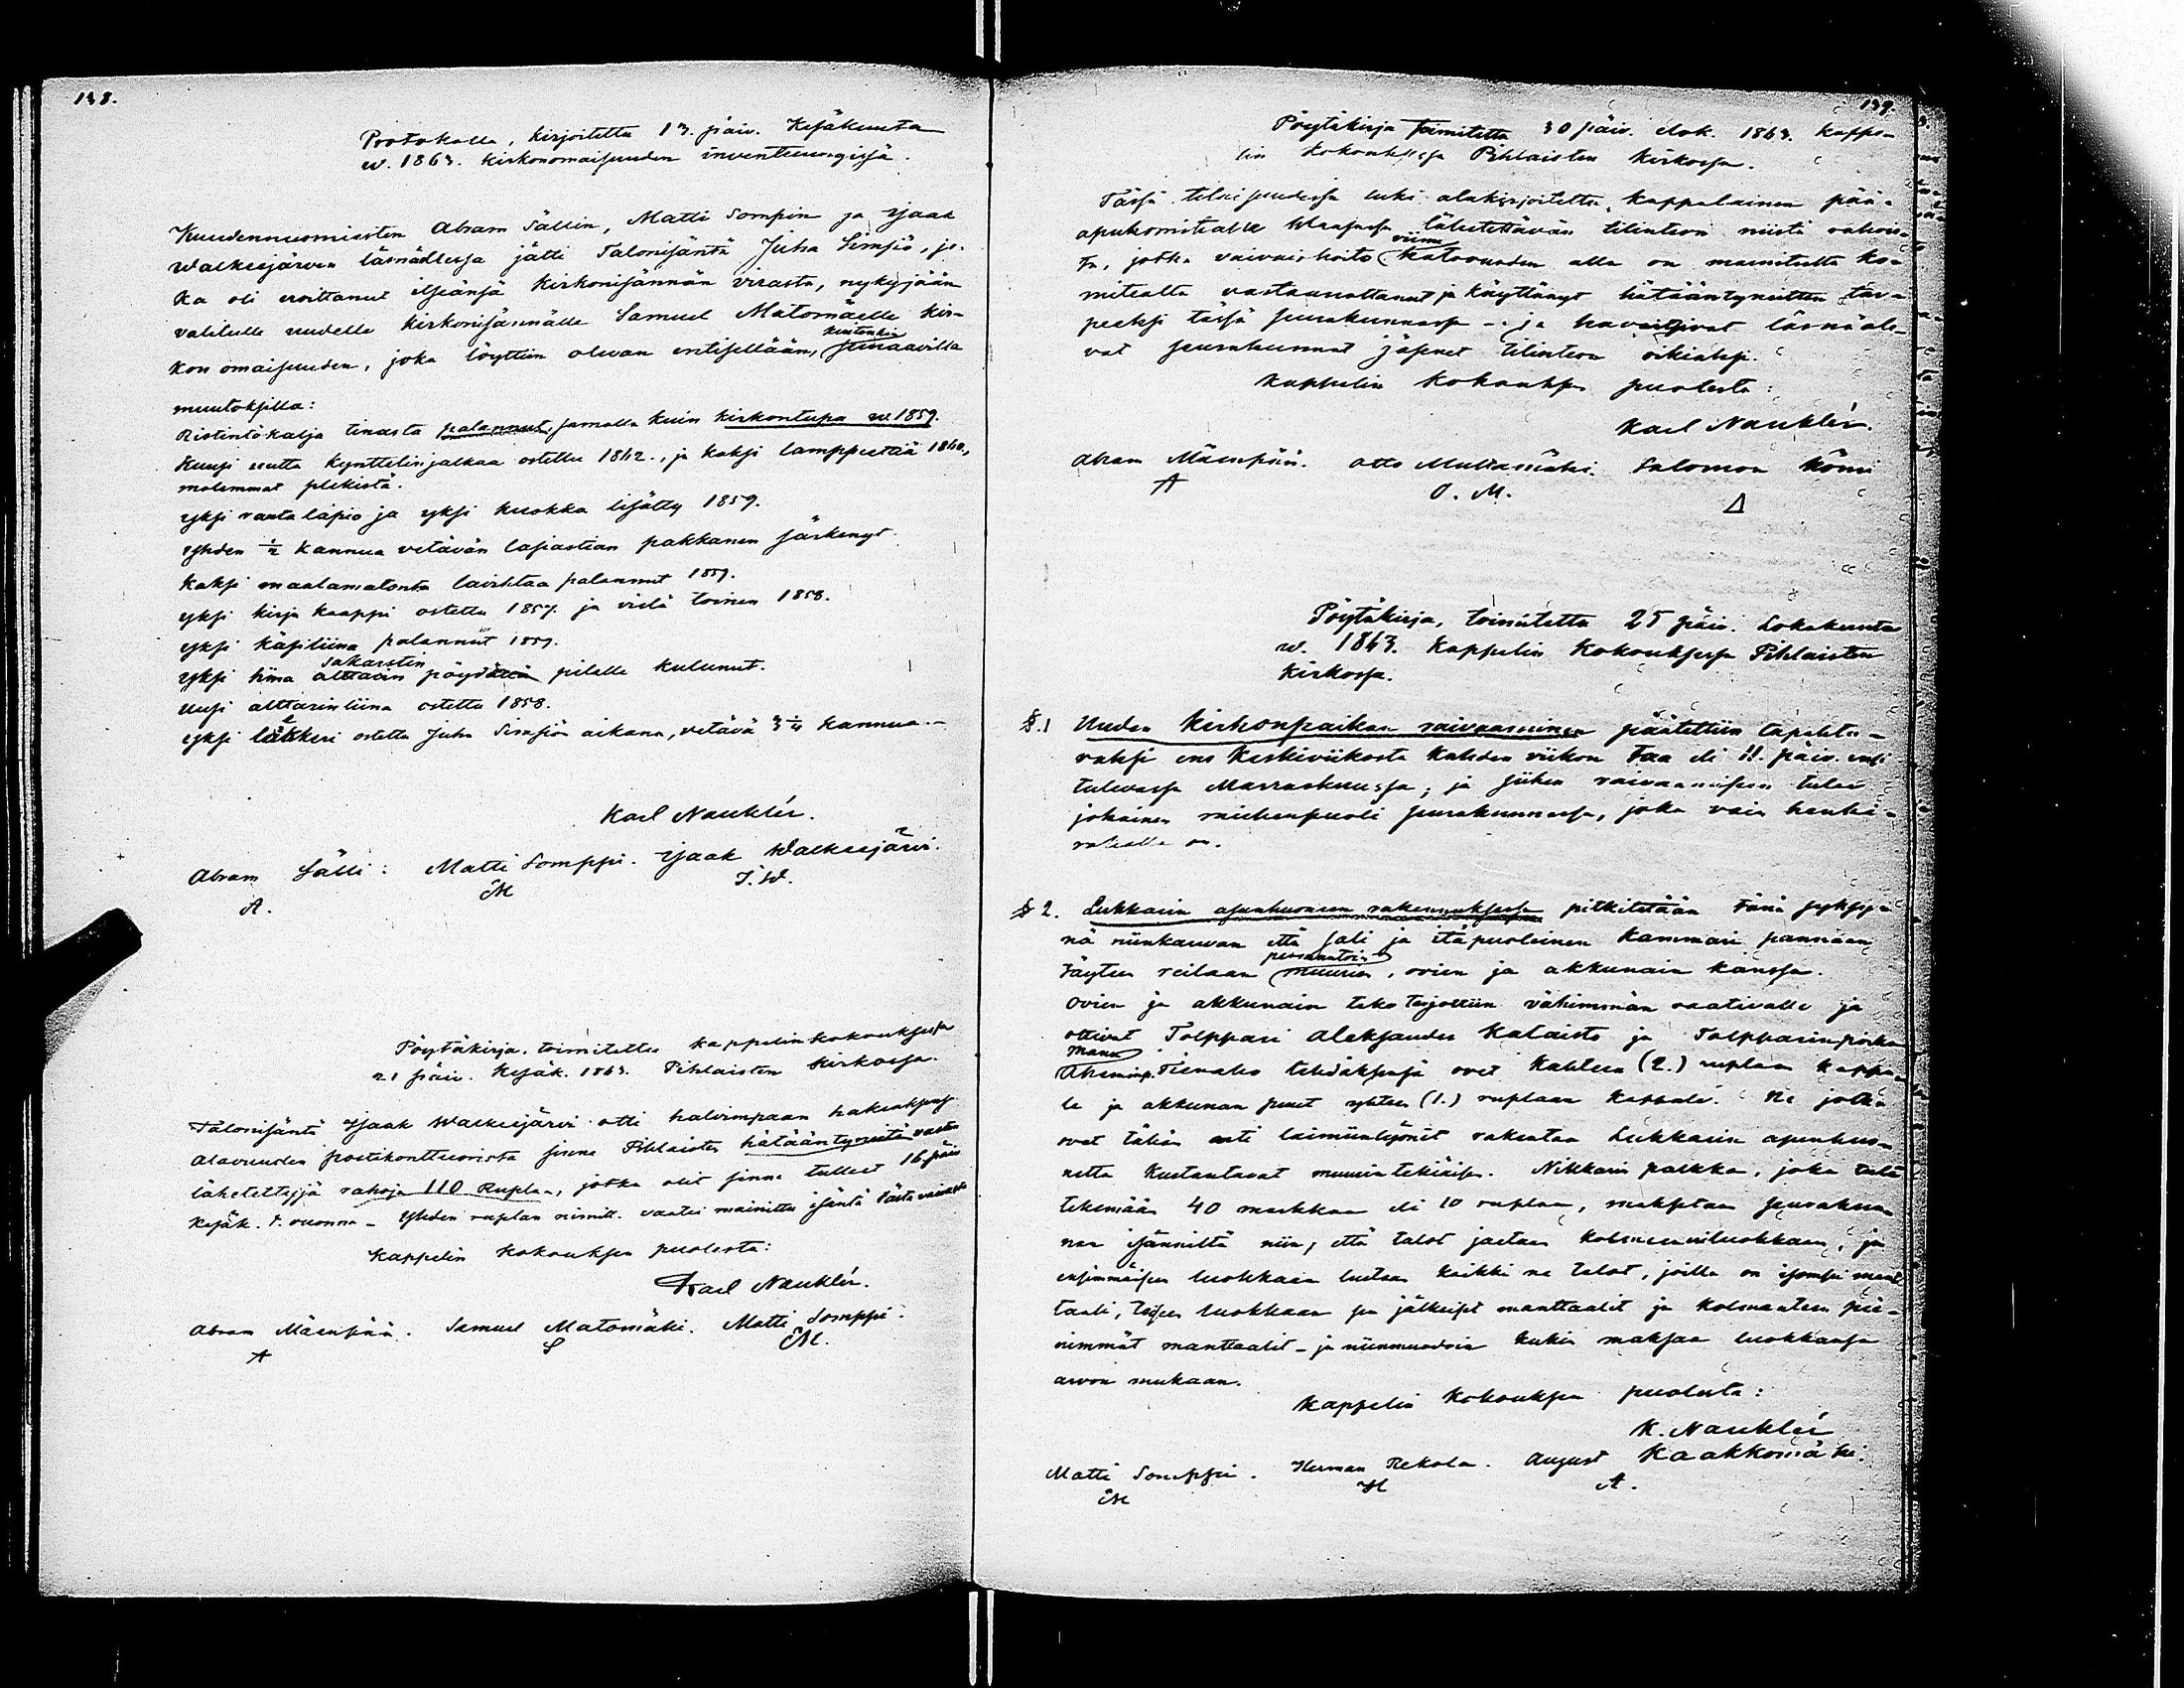 138.
Protokolla, kirjoitettu 13. päiv. Kesäkuuta
w. 1863. kirkonomaisuuden inventeeringissä.
Kuudennusmiesten Abram Sällin, Matti Sompin ja Isaak
Walkeejärven läsnäollessa jätti Talonisäntä Juha Simsiö, jo-
ka oli eroittanut itseänsä kirkonisännän virasta, nykyjään
valitulle uudelle kirkonisännälle Samuel Matomäelle kir-
kon omaisuuden, joka löyttiin olevan entisellään, kuitenkin seuraavilla
muutoksilla:
Ristintökalja tinasta palannut, samalla kuin kirkontupa w. 1859.
Kuusi uutta kynttelinjalkaa ostettu 1862., ja kaksi lamppustiä 1860.,
molemmat plekistä.
yksi rautalapio ja yksi kuokka lisätty 1859.
Yhden 1/2 kannua vetävän lasiastian pakkanen särkenyt.
kaksi maalamatonta lavihtaa palannut 1859.
yksi kirja kaappi ostettu 1857. ja vielä toinen 1858.
yksi käsiliina palannut 1859.
yksi liina sakarstin alttarin pöydän pilalle kulunut.
Uusi alttarinliina ostettu 1858.
yksi läkkeri ostettu Juha Simsiön aikana, vetävä 3 1/4 kannua. -
Karl Nauklér.
Abram Sälli: Matti Somppi. Isaak Walkeejärvi.
A. M I. W.
Pöytäkirja, toimitettu kappelinkokouksessa
21 päiv. Kesäk. 1863. Pihlaisten kirkossa.
Talonisäntä Isaak Walkeejärvi otti halvimpaan hakeaksensa
Alavuuden postikonttuorista sinne Pihlaisten hätääntyneitä varten
lähetettyjä rahoja 110 Ruplaa, jotka olit sinne tulleet 16. päiv
Kesäk. t. vuonna - Yhden ruplan nimitt. vaatei mainittu isäntä tästä vaivasta
Kappelin kokouksen puolesta:
Karl Nauklér.
Abram Mäenpää. Samuel Matomäki. Matti Somppi.
A S M.
139.
Pöytäkirja toimitettu 30 päiv. elok. 1863. kappe-
lin kokouksessa Pihlaisten kirkossa.
Tässä tilaisuudessa luki alakirjoitettu kappalainen pää-
apukomitealle Waasassa lähetettävän tilinteon niistä rahois-
ta, jotka vaivaishoito viime katovuoden alla on mainitulta ko-
mitealta vastaanottanut ja käyttänyt hätääntyneitten tar-
peeksi tässä seurakunnassa - ja havaitsivat läsnäole-
vat seurakunnat jäsenet tilinteon oikiaksi.
Kappelin kokouksen puolesta:
Karl Nauklér.
Abram Mäenpää. Otto Multamäki. Salomon Kömi
A O. M. Δ
Pöytäkirja, toimitettu 25 päiv. Lokakuuta
w. 1863. kappelin kokouksessa Pihlaisten
kirkossa.
§. 1 Uuden kirkonpaikan raivaaminen päätettiin tapahtu-
vaksi ens Keskiviikosta kahden viikon taa eli 11. päiv. ensi
tulevassa Marraskuussa, ja siihen raivaamiseen tulee
jokainen miehenpuoli seurakunnassa, joka vain henki-
rahalla on.
§ 2. Lukkarin asuinhuoneen rakennuksessa pitkitetään tänä syksy-
nä niinkauvan että sali ja itäpuoleinen kammari pannaan
täyteen reilaan permantoin muurien, ovien ja akkunain kanssa.
Ovien ja akkunain teko tarjottiin vähimmän vaativalle ja
ottivat Tolppari Aleksander Kataisto ja Tolpparinpoika
Manu Ahenimp. Tienaho tehdäksensä ovet kahteen (2.) ruplaan kappa-
le ja akkunan puut yhteen (1.) ruplaan kappale. Ne jotka
ovat tähän asti laiminlyönet rakentaa Lukkarin asuinhuo-
netta kustantavat muurintekiäisen. Nikkarin palkka, joka tulee
tekemään 40 markkaa eli 10 ruplaa, maksetaan seurakun-
nan isänniltä niin, että talot jaetaan kolmeenviluokkaan, ja
ensimmäiseen luokkaan luetaan kaikki ne talot, joilla on isompi mant
taali, toiseen luokkaan sen jälkeiset manttaalit ja kolmanteen pie-
nimmät manttaalit - ja niinmuodoin kukin maksaa luokkansa
arvon mukaan.
Kappelin kokouksen puolesta:
K. Nauklér
Matti Somppi. Herman Rekola. August Kaakkomäki.
M H A.